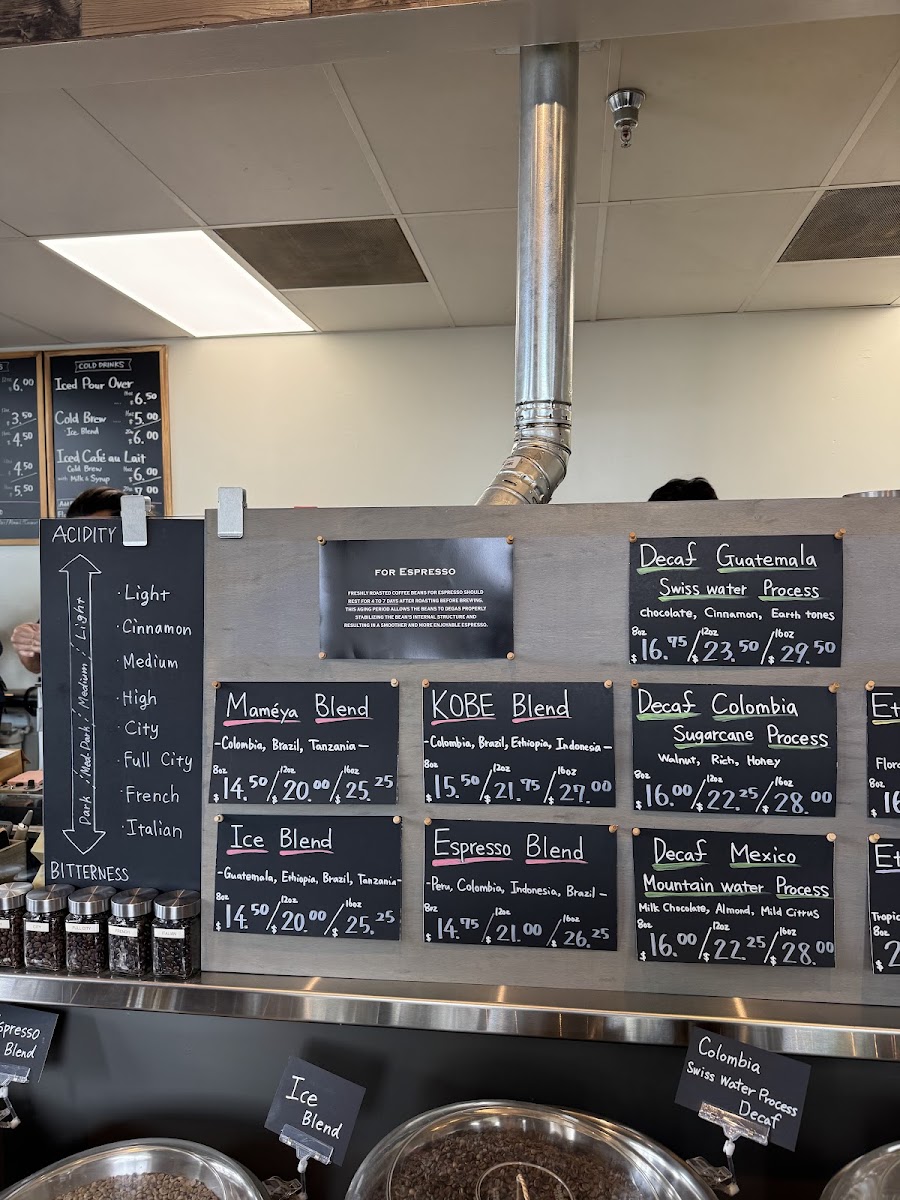 $6.00
$3.50
$4.50
$4.50
$5.50
COLD DRINKS
Iced Pour Over
$6.50
Cold Brew $5.00
· Ice Blend $6.00
Iced Café au Lait
Cold Brew $6.00
with Milk & Syrup
ACIDITY
Dark / Med.Dark / Medium / Light
· Light
· Cinnamon
· Medium
· High
· City
· Full City
· French
· Italian
BITTERNESS
FOR ESPRESSO
FRESHLY ROASTED COFFEE BEANS FOR ESPRESSO SHOULD
REST FOR 4 TO 7 DAYS AFTER ROASTING BEFORE BREWING.
THIS AGING PERIOD ALLOWS THE BEANS TO DEGAS PROPERLY
STABILIZING THE BEAN'S INTERNAL STRUCTURE AND
RESULTING IN A SMOOTHER AND MORE ENJOYABLE ESPRESSO.
Decaf Guatemala
Swiss water Process
Chocolate, Cinnamon, Earth tones
8oz $16.75 / 12oz $23.50 / 16oz $29.50
Maméya Blend
-Colombia, Brazil, Tanzania-
8oz $14.50 / 12oz $20.00 / 16oz $25.25
KOBE Blend
-Colombia, Brazil, Ethiopia, Indonesia-
8oz $15.50 / 12oz $21.75 / 16oz $27.00
Decaf Colombia
Sugarcane Process
Walnut, Rich, Honey
8oz $16.00 / 12oz $22.25 / 16oz $28.00
Et
Flor
8oz
$16
Ice Blend
-Guatemala, Ethiopia, Brazil, Tanzania-
8oz $14.50 / 12oz $20.00 / 16oz $25.25
Espresso Blend
-Peru, Colombia, Indonesia, Brazil-
8oz $14.75 / 12oz $21.00 / 16oz $26.25
Decaf Mexico
Mountain water Process
Milk Chocolate, Almond, Mild Citrus
8oz $16.00 / 12oz $22.25 / 16oz $28.00
Et
Tropic
8oz
$2
Espresso
Blend
Ice
Blend
Colombia
Swiss Water Process
Decaf